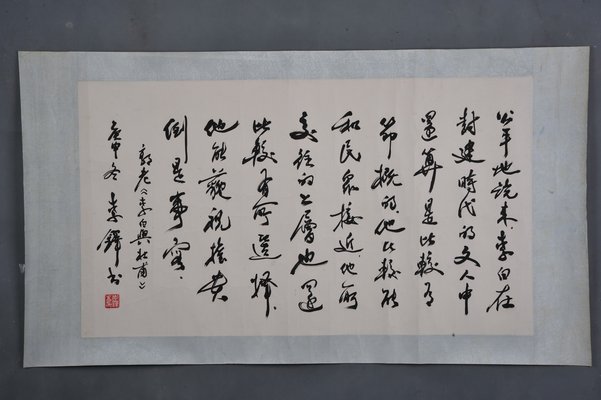 公平地说来,李白在
封建時代的文人中
還算是比較有
節概的,他比較能
和民众接近,他所
交往的上層也還
比較有所選擇,
他能藐視權貴
倒是事实,
郭老《李白與杜甫》
庚申冬 李鐸书